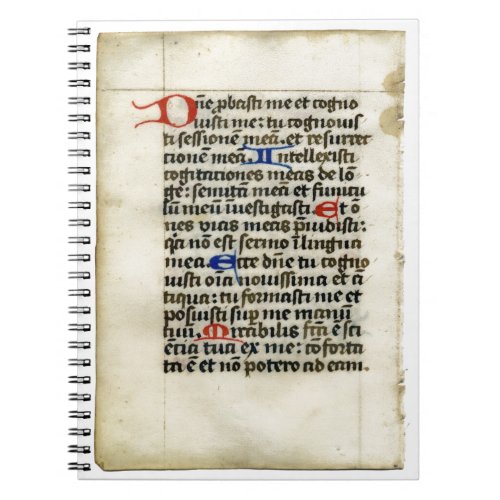 Dñe ꝓbasti me et cogno
uisti me: tu cognouis
ti sessionē meā. et resurrec
tionē meā. Intellexisti
cogitationes meas de lō
ge: semitam meā et funicu
lum meū īuestigasti. Et ō
nes uias meas p̄uidisti:
quia nō est sermo ī lingua
mea. Ecce dñe tu cogno
uisti oīa nouissima et ā
tiqua: tu formasti me et
posuisti sup me manū
tuā. Mirabilis fc̄a ē sci
ētia tua ex me: cōforta
ta ē et nō potero ad eam.